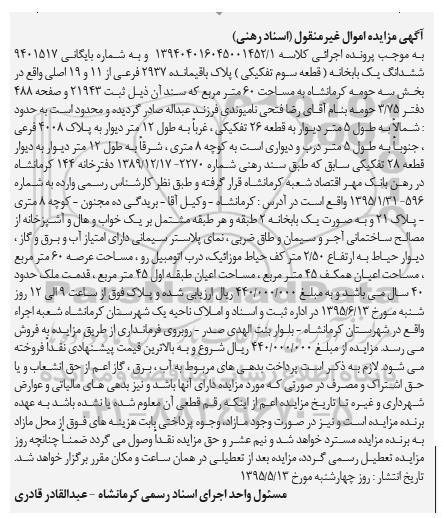 آگهی مزایده اموال غیرمنقول (اسناد رهنی)
به موجب پرونده اجرائی کلاسه ۱۳۹۴۰۴۰۱۶۰۴۵۰۰۱۴۵۲/۱ و به شماره بایگانی ۹۴۰۱۵۱۷
ششدانگ یک بابخانه ( قطعه سوم تفکیکی ) پلاک باقیمانده ۲۹۳۷ فرعی از ۱۱ و ۱۹ اصلی واقع در
بخش سه حومه کرمانشاه به مساحت ۶۰ متر مربع که سند آن ذیل ثبت ۲۱۹۴۳ و صفحه ۴۸۸
دفتر ۳/۷۵ حومه بنام آقای رضا فتحی نامیوندی فرزند عبداله صادر گردیده و محدود است به حدود
: شمالاً به طول ۵ متر دیوار به قطعه ۲۶ تفکیکی ، غرباً به طول ۱۲ متر دیوار به پلاک ۴۰۰۸ فرعی
، جنوباً به طول ۵ متر درب و دیواری است به کوچه ۸ متری ، شرقاً به طول ۱۲ متر دیوار به دیوار
قطعه ۲۸ تفکیکی سابق که طبق سند رهنی شماره ۲۲۷۰- ۱۳۸۹/۱۲/۱۷ دفترخانه ۱۴۴ کرمانشاه
در رهن بانک مهر اقتصاد شعبه کرمانشاه قرار گرفته و طبق نظر کارشناس رسمی وارده به شماره
۵۹۶- ۱۳۹۵/۱/۳۱ واقع است در آدرس : کرمانشاه - وکیل آقا - بریدگی ده مجنون - کوچه ۸ متری
- پلاک ۲۱ و به صورت یک بابخانه ۲ طبقه و هر طبقه مشتمل بر یک خواب و هال و آشپزخانه از
مصالح ساختمانی آجر و سیمان و طاق ضربی ، نمای پلاستر سیمانی دارای امتیاز آب و برق و گاز ،
دیوار حیاط به ارتفاع ۲/۵۰ متر کف حیاط موزائیک، درب اتومبیل رو ، مساحت عرصه ۶۰ متر مربع
، مساحت اعیان همکف ۴۵ متر مربع ، مساحت اعیان طبقه اول ۴۵ متر مربع ، قدمت ملک حدود
۴۰ سال می باشد و به مبلغ ۴۴۰/۰۰۰/۰۰۰ ریال ارزیابی شده و پلاک فوق از ساعت ۹ الی ۱۲ روز
شنبه مورخ ۱۳۹۵/۶/۱۳ در اداره ثبت و اسناد و املاک ناحیه یک شهرستان کرمانشاه شعبه اجراء
واقع در شهرستان کرمانشاه - بلوار بنت الهدی صدر - روبروی فرمانداری از طریق مزایده به فروش
می رسد. مزایده از مبلغ ۴۴۰/۰۰۰/۰۰۰ ریال شروع و به بالاترین قیمت پیشنهادی نقداً فروخته
می شود. لازم به ذکر است پرداخت بدهی های مربوط به آب ، برق ، گاز اعم از حق انشعاب و یا
حق اشتراک و مصرف در صورتی که مورد مزایده دارای آنها باشد و نیز بدهی های مالیاتی و عوارض
شهرداری و غیره تا تاریخ مزایده اعم از اینکه رقم قطعی آن معلوم شده یا نشده باشد به عهده
برنده مزایده است و نیز در صورت وجود مازاد، وجوه پرداختی بابت هزینه های فوق از محل مازاد
به برنده مزایده مسترد خواهد شد و نیم عشر و حق مزایده نقداً وصول می گردد ضمناً چنانچه روز
مزایده تعطیل رسمی گردد، مزایده بعد از تعطیلی در همان ساعت و مکان مقرر برگزار خواهد شد.
تاریخ انتشار : روز چهارشنبه مورخ ۱۳۹۵/۵/۱۳
مسئول واحد اجرای اسناد رسمی کرمانشاه - عبدالقادر قادری